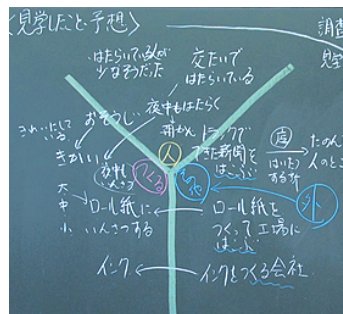 〈見学したこと・予想〉
調査
見学
はたらいている人が
少なそうだった
交たいで
はたらいている
夜中もはたらく
おそうじ
きれいにして
いる
きかい
朝かん
トラックで
できた新聞を
はこぶ
人
店
はいたつ
する所
たのんで
人のところ
夜中も
いんさつ
つくる
その他
外
大
中
小
ロール紙に
いんさつする
ロール紙を
つくって工場に
はこぶ
インク
インクをつくる会社